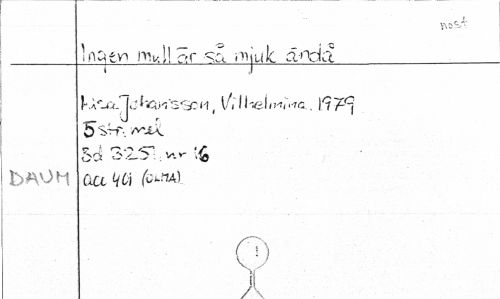 nost
Ingen mull är så mjuk ändå
Lisa Johansson, Vilhelmina. 1979
5 str. mel
Bd 3251. nr 16
DAUM acc 401 (ULMA)